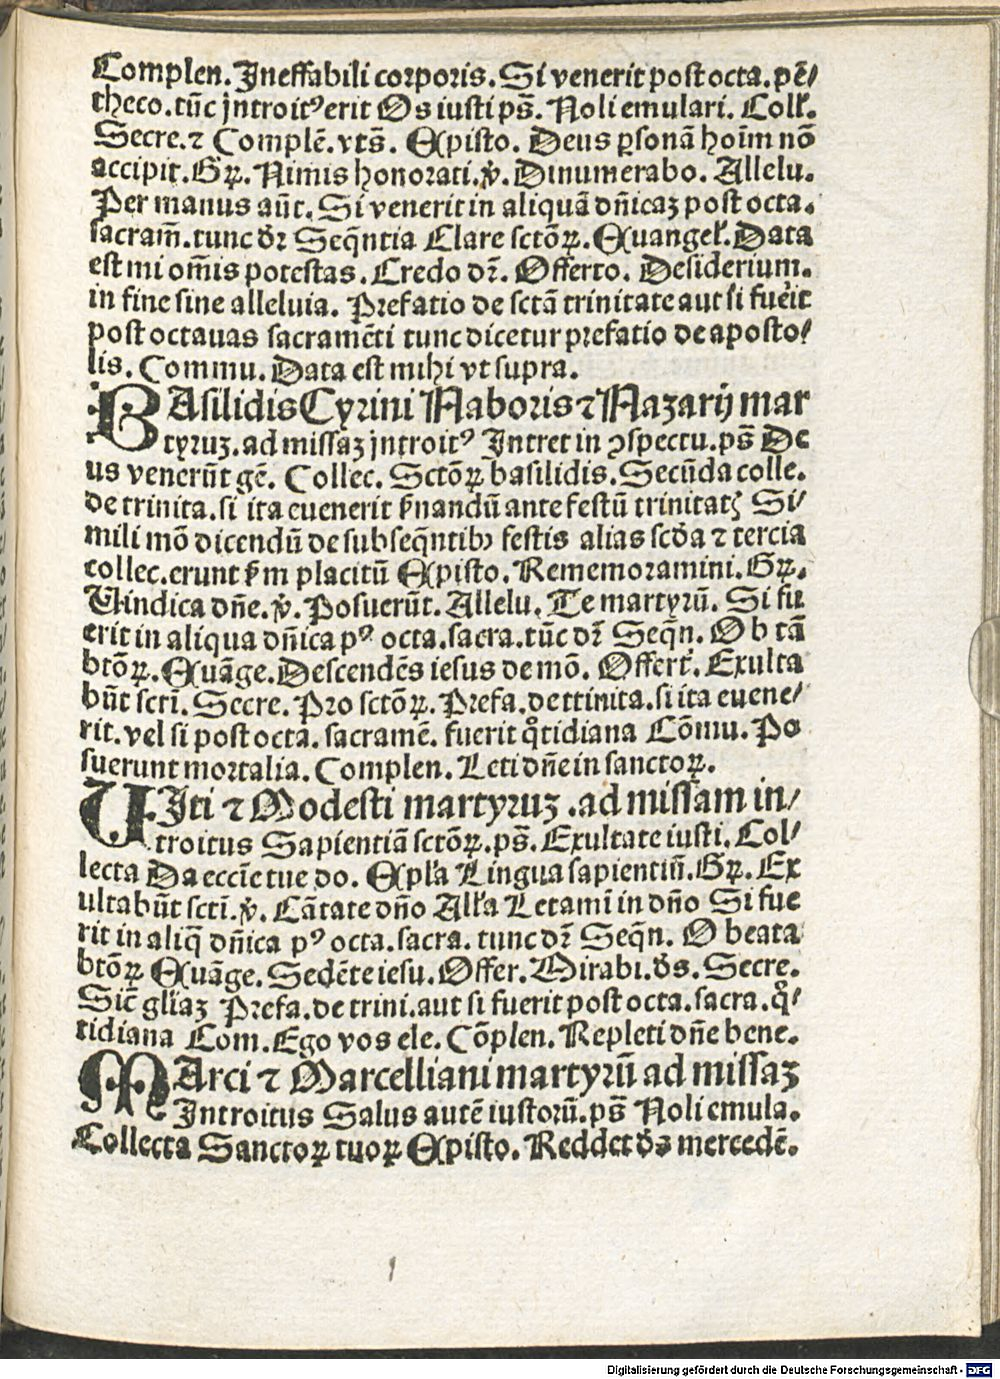 Complen. Ineffabili corporis. Si venerit post octa. pē/
theco. tūc introitꝰ erit Os iusti ps̄. Noli emulari. Coll̄.
Secre. ⁊ Complē. vts̄. Episto. Deus ꝑsonā hoīm nō
accipit. Gꝝ. Nimis honorati. ℣. Dinumerabo. Allelu.
Per manus aūt. Si venerit in aliquā dn̄icaꝫ post octa.
sacram̄. tunc dr̄ Seq̄ntia Clare sctōꝝ. Euangel̄. Data
est mi om̄is potestas. Credo dr̄. Offerto. Desiderium.
in fine sine alleluia. Prefatio de sctā trinitate aut si fuerit
post octauas sacramēti tunc dicetur prefatio de aposto/
lis. Commu. Data est mihi vt supra.
BAsilidis Cyrini Naboris ⁊ Nazarij mar
tyruꝫ. ad missaꝫ introitꝰ Intret in ↄspectu. ps̄ De
us venerūt gē. Collec. Sctōꝝ basilidis. Secūda colle.
de trinita. si ita euenerit ẜuandū ante festū trinitatꝭ Si/
mili mō dicendū de subseq̄ntibꝫ festis alias scd̄a ⁊ tercia
collec. erunt ẜm placitū Episto. Rememoramini. Gꝝ.
Vindica dn̄e. ℣. Posuerūt. Allelu. Te martyrū. Si fu
erit in aliqua dn̄ica pꝰ octa. sacra. tūc dr̄ Seq̄n. O b tā
btōꝝ. Euāge. Descendēs iesus de mō. Offert̄. Exulta
būt sctī. Secre. Pro sctōꝝ. Prefa. de ttinita. si ita euene/
rit. vel si post octa. sacramē. fuerit qͦtidiana Cōmu. Po
suerunt mortalia. Complen. Leti dn̄e in sanctoꝝ.
VIti ⁊ Modesti martyruꝫ. ad missam in/
troitus Sapientiā sctōꝝ. ps̄. Exultate iusti. Col/
lecta Da eccīe tue do. Epl̄a Lingua sapientiū. Gꝝ. Ex
ultabūt sctī. ℣. Cātate dn̄o All̄a Letamī in dn̄o Si fue
rit in aliq̄ dn̄ica pꝰ octa. sacra. tunc dr̄ Seq̄n. O beata
btōꝝ Euāge. Sedēte iesu. Offer. Mirabi. ds̄. Secre.
Sic̄ gl̄iaꝫ Prefa. de trini. aut si fuerit post octa. sacra. qͦ/
tidiana Com. Ego vos ele. Cōplen. Repleti dn̄e bene.
MArci ⁊ Marcelliani martyrū ad missaꝫ
Introitus Salus autē iustorū. ps̄ Noli emula.
Collecta Sanctoꝝ tuoꝝ Episto. Reddet ds̄ mercedē.
Digitalisierung gefördert durch die Deutsche Forschungsgemeinschaft - DFG